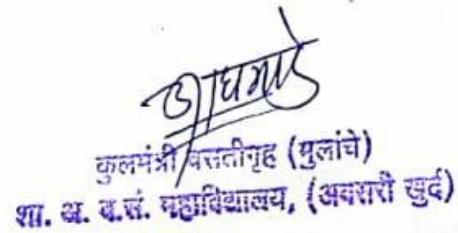 कुलमंत्री वसतीगृह (मुलांचे)
शा. अ. व.सं. महाविद्यालय, (अवसरी खुर्द)